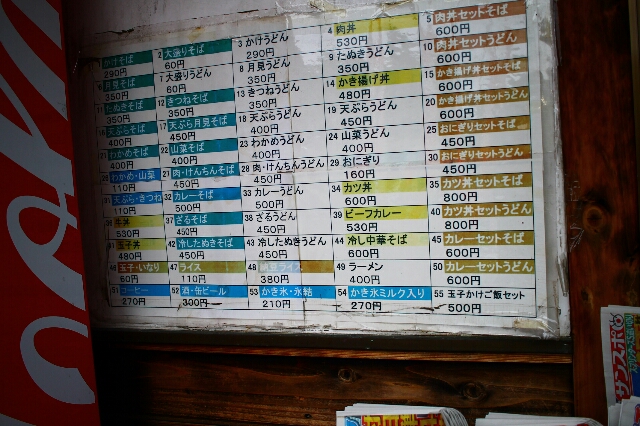 かけそば
290円
2 大盛りそば
60円
3 かけうどん
290円
4 肉丼
530円
5 肉丼セットそば
600円
月見そば
350円
7 大盛りうどん
60円
8 月見うどん
350円
9 たぬきうどん
350円
10 肉丼セットうどん
600円
たぬきそば
350円
12 きつねそば
350円
13 きつねうどん
350円
14 かき揚げ丼
480円
15 かき揚げ丼セットそば
600円
16 天ぷらそば
400円
17 天ぷら月見そば
450円
18 天ぷらうどん
400円
19 天ぷらうどん
450円
20 かき揚げ丼セットうどん
600円
わかめそば
400円
22 山菜そば
400円
23 わかめうどん
400円
24 山菜うどん
400円
25 おにぎりセットそば
450円
26 わかめ・山菜
110円
27 肉・けんちんそば
450円
28 肉・けんちんうどん
450円
29 おにぎり
160円
30 おにぎりセットうどん
450円
31 天ぷら・きつね
110円
32 カレーそば
500円
33 カレーうどん
500円
34 カツ丼
630円
35 カツ丼セットそば
800円
丼
530円
37 ざるそば
450円
38 ざるうどん
450円
39 ビーフカレー
580円
40 カツ丼セットうどん
800円
41 玉子丼
480円
42 冷したぬきそば
450円
43 冷したぬきうどん
450円
44 冷し中華そば
600円
45 カレーセットそば
600円
46 玉子・いなり
60円
47 ライス
110円
48 納豆ライス
380円
49 ラーメン
400円
50 カレーセットうどん
600円
51 コーヒー
270円
52 酒・缶ビール
300円
53 かき氷・氷結
210円
54 かき氷ミルク入り
270円
55 玉子かけご飯セット
500円
サンスポ